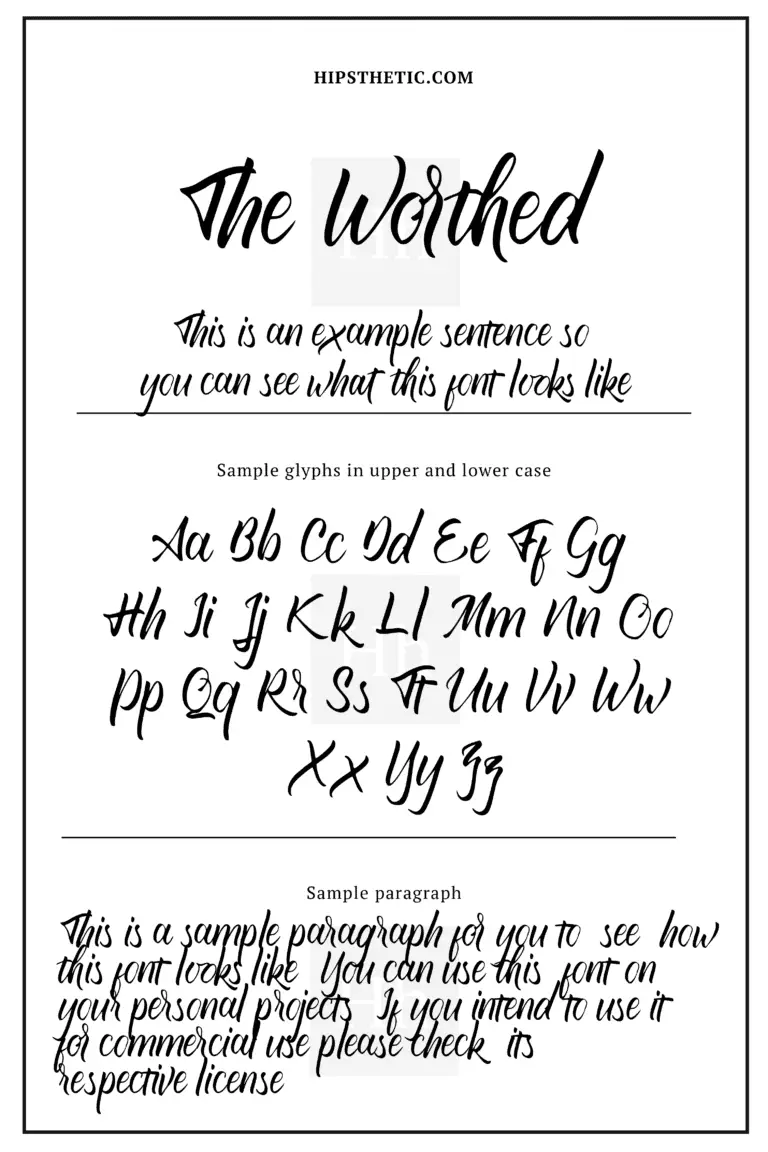 HIPSTHETIC.COM
The Worthed
This is an example sentence so
you can see what this font looks like
Sample glyphs in upper and lower case
Aa Bb Cc Dd Ee Ff Gg
Hh Ii Jj Kk Ll Mm Nn Oo
Pp Qq Rr Ss Tt Uu Vv Ww
Xx Yy Zz
Sample paragraph
This is a sample paragraph for you to see how
this font looks like You can use this font on
your personal projects If you intend to use it
for commercial use please check its
respective license